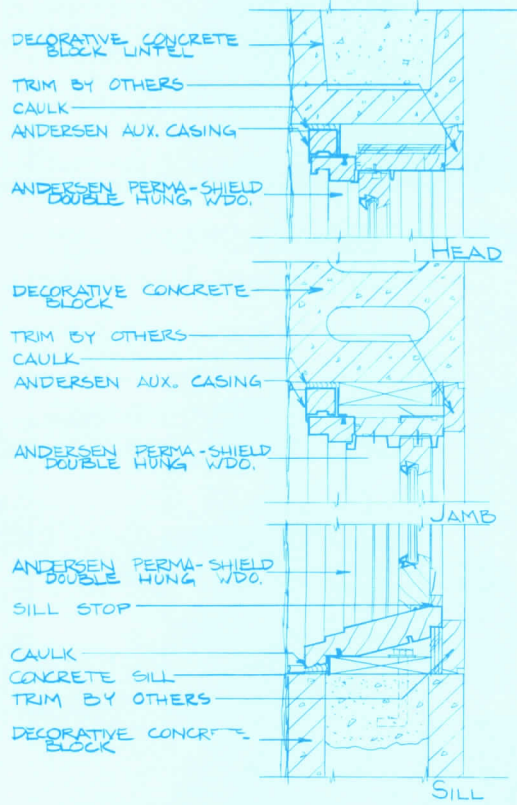 DECORATIVE CONCRETE
BLOCK LINTEL
TRIM BY OTHERS
CAULK
ANDERSEN AUX. CASING
ANDERSEN PERMA-SHIELD
DOUBLE HUNG WDO.
HEAD
DECORATIVE CONCRETE
BLOCK
TRIM BY OTHERS
CAULK
ANDERSEN AUX. CASING
ANDERSEN PERMA-SHIELD
DOUBLE HUNG WDO.
JAMB
ANDERSEN PERMA-SHIELD
DOUBLE HUNG WDO.
SILL STOP
CAULK
CONCRETE SILL
TRIM BY OTHERS
DECORATIVE
BLOCK
SILL